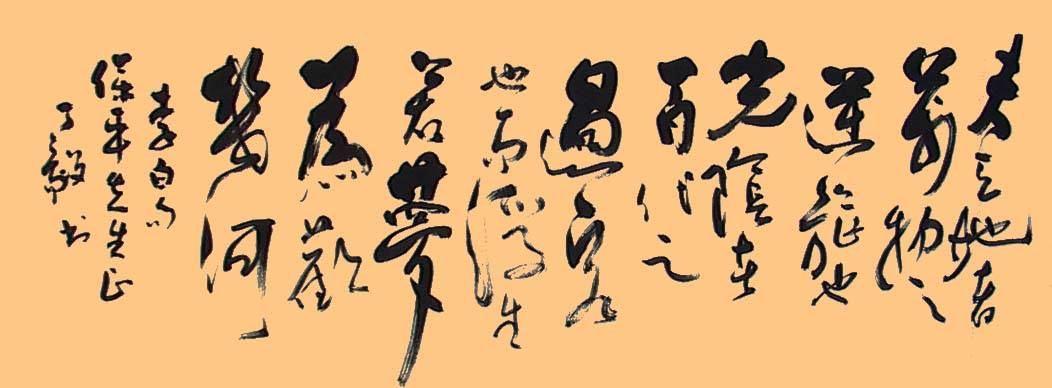 夫天地者
萬物之
逆旅也
光陰者
百代之
過客
也而浮生
若夢
為歡
幾何
李白句
保平先生正
书